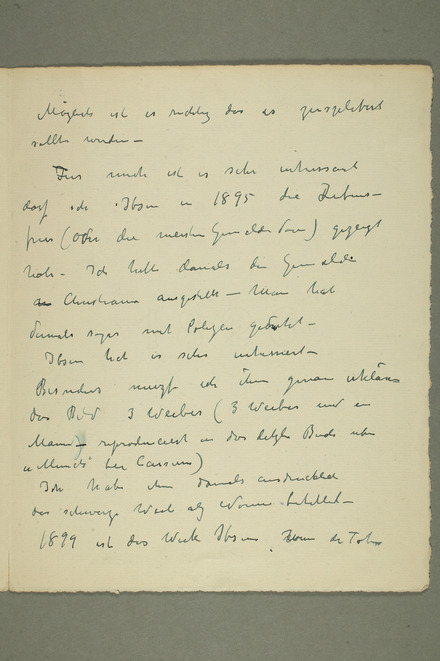 Möglich ist es richtig das es
sollte werden –
Für mich ist es sehr interessant
das ich Ibsen in 1895 die Lebens-
fries (oder die meisten Gemälde davon) gezeigt
habe – Ich hatte damals die Gemälde
in Christiania ausgestellt – Man hat
damals sogar mit Polizei gedroht –
Ibsen hat es sehr interessiert –
Besonders musste ich ihm genau erklären
das Bild 3 Weiber (3 Weiber und ein
Mann – reproduciert in das letzte Buch über
Munch bei Cassirer)
Ich habe ihm damals ausdrücklich
das schwarze Weib als Nonne betitelt –
1899 ist das Werk Ibsens, Wenn die Toten